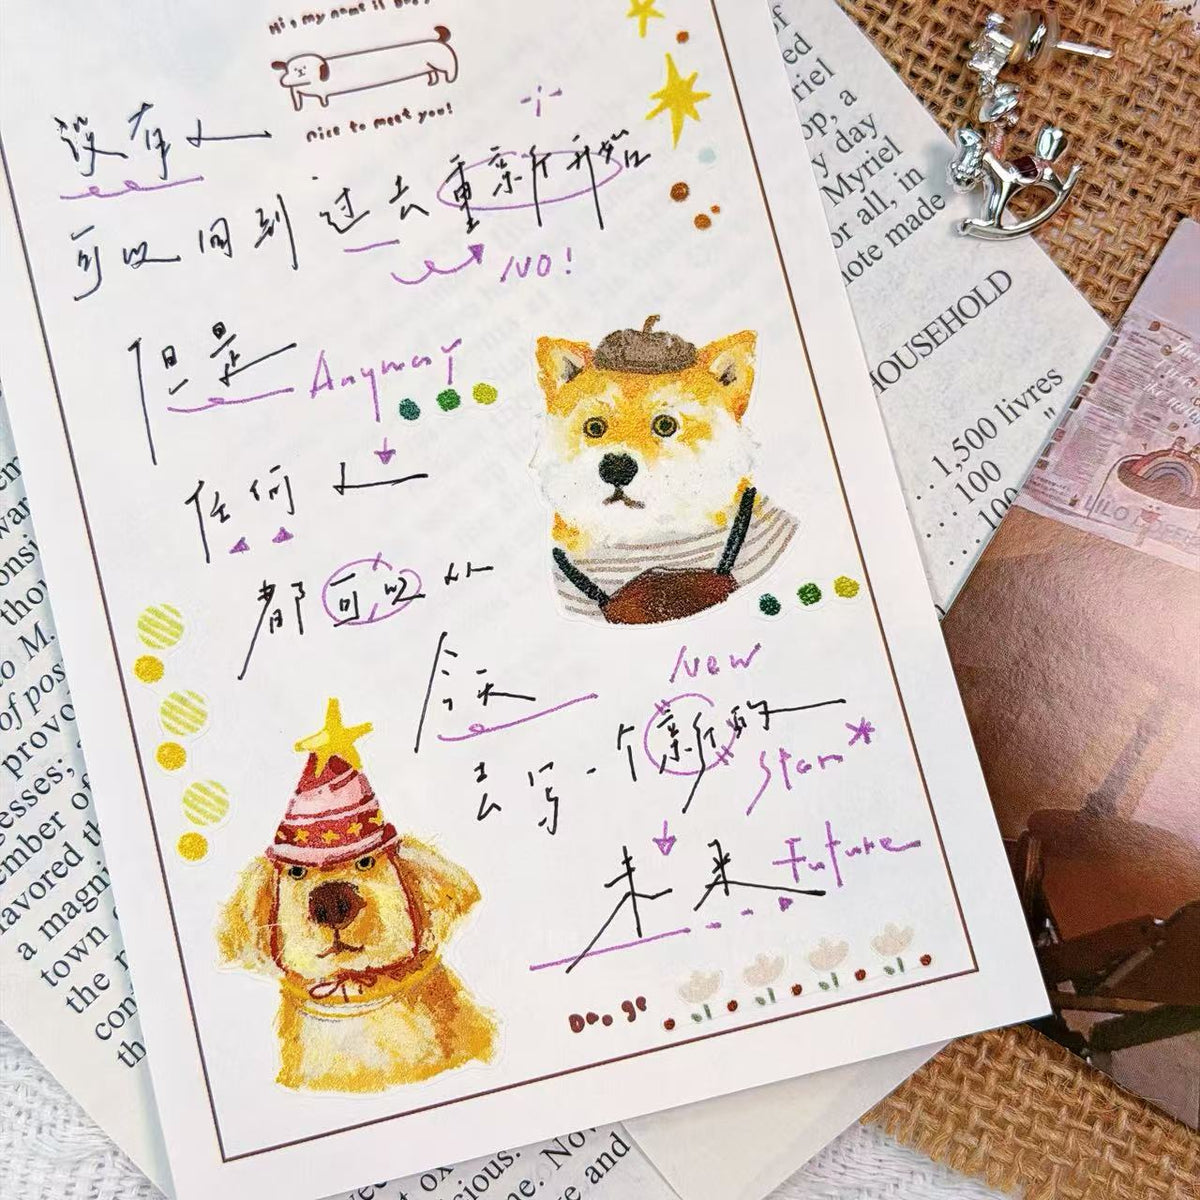 Hi, my name is
nice to meet you!
没有人
可以回到过去重新开始
NO!
但是 Anyway
任何人
都可以从
今天
New
去写一个新的
未来 Future
of
ed
riel
op, a
y day
Myriel
or all, in
note made
HOUSEHOLD
1,500 livres
100 "
100
to M.
of pos
provo
esses;
ember of
favored th
a magni
town
the
con
th
icious.